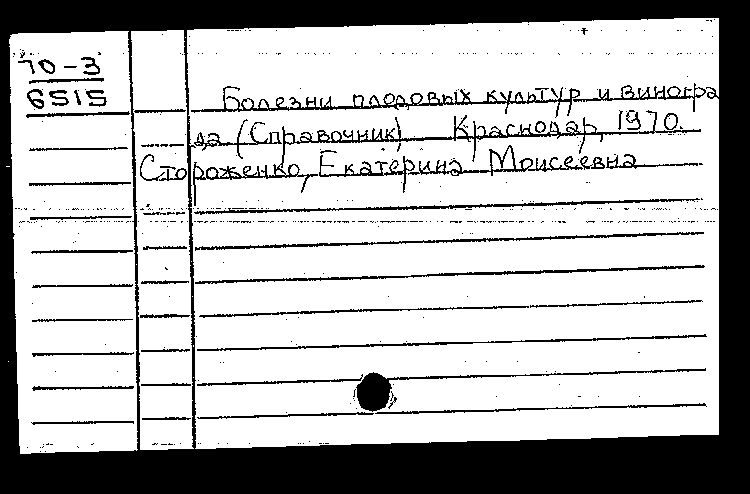 70-3
6515
Болезни плодовых культур и виногра
да (Справочник) Краснодар, 1970.
Стороженко, Екатерина Моисеевна